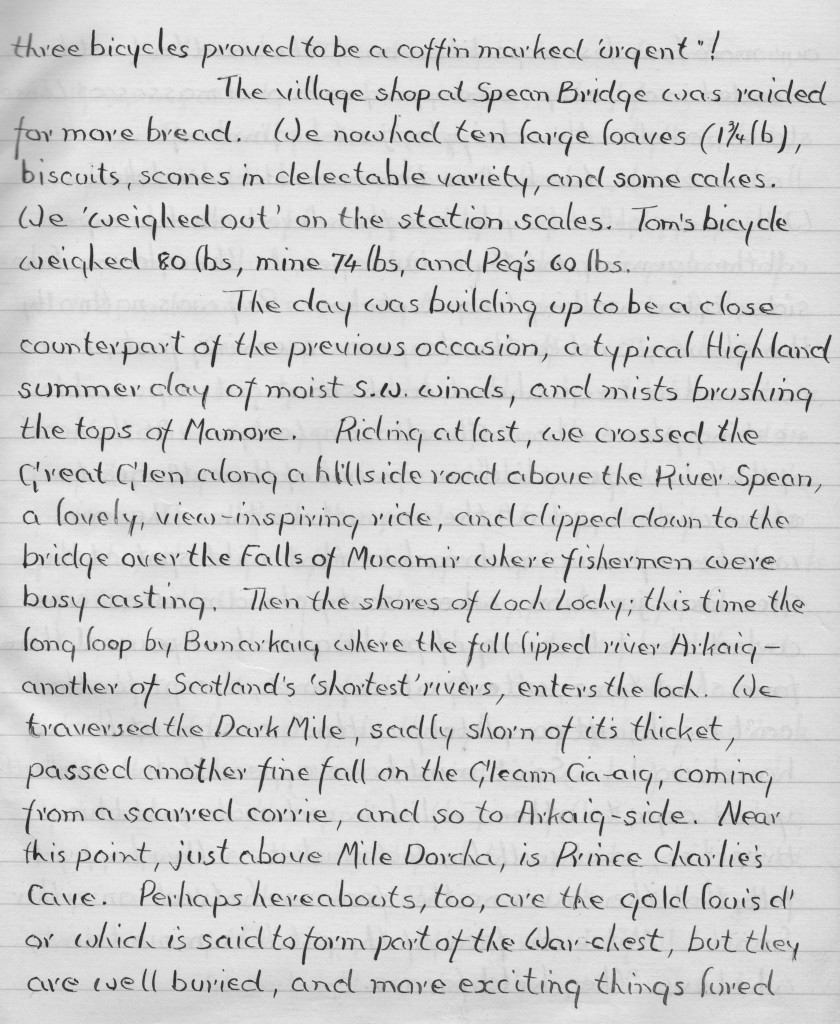 three bicycles proved to be a coffin marked 'urgent"!
The village shop at Spean Bridge was raided
for more bread. We now had ten large loaves (1¾lb),
biscuits, scones in delectable variety, and some cakes.
We 'weighed out' on the station scales. Tom's bicycle
weighed 80 lbs, mine 74 lbs, and Peg's 60 lbs.
The day was building up to be a close
counterpart of the previous occasion, a typical Highland
summer day of moist S.W. winds, and mists brushing
the tops of Mamore. Riding at last, we crossed the
Great Glen along a hillside road above the River Spean,
a lovely, view-inspiring ride, and dipped down to the
bridge over the Falls of Mucomir where fishermen were
busy casting. Then the shores of Loch Lochy; this time the
long loop by Bunarkaig where the full lipped river Arkaig -
another of Scotland's 'shortest' rivers, enters the loch. We
traversed the Dark Mile, sadly shorn of it's thicket,
passed another fine fall on the Gleann Cia-aig, coming
from a scarred corrie, and so to Arkaig-side. Near
this point, just above Mile Dorcha, is Prince Charlie's
Cave. Perhaps hereabouts, too, are the gold louis d'
or which is said to form part of the War-chest, but they
are well buried, and more exciting things lured